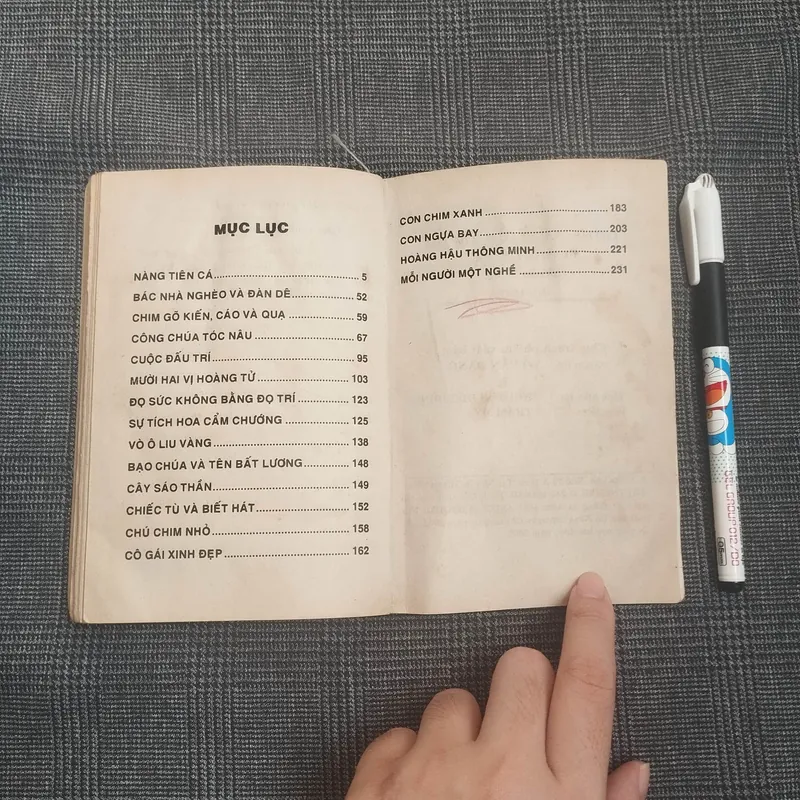 MỤC LỤC
NÀNG TIÊN CÁ 5
BÁC NHÀ NGHÈO VÀ ĐÀN DÊ 52
CHIM GÕ KIẾN, CÁO VÀ QUẠ 59
CÔNG CHÚA TÓC NÂU 67
CUỘC ĐẤU TRÍ 95
MƯỜI HAI VỊ HOÀNG TỬ 103
ĐỌ SỨC KHÔNG BẰNG ĐỌ TRÍ 123
SỰ TÍCH HOA CẨM CHƯỚNG 125
VÒ Ô LIU VÀNG 138
BẠO CHÚA VÀ TÊN BẤT LƯƠNG 148
CÂY SÁO THẦN 149
CHIẾC TÙ VÀ BIẾT HÁT 152
CHÚ CHIM NHỎ 158
CÔ GÁI XINH ĐẸP 162
CON CHIM XANH 183
CON NGỰA BAY 203
HOÀNG HẬU THÔNG MINH 221
MỖI NGƯỜI MỘT NGHỀ 231